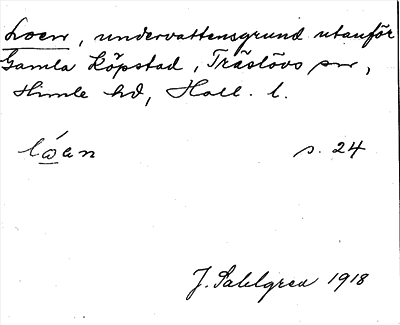 Loen, undervattensgrund utanför
Gamla Köpstad, Träslövs sn,
Himle hd, Hall. l.
lóan s. 24
J. Sahlgren 1918